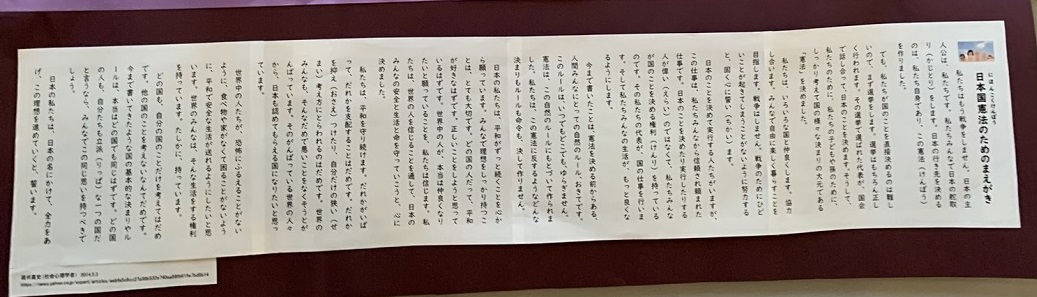 にほんこくけんぽう
日本国憲法のためのまえがき
私たちはもう戦争をしません。日本の主
人公は、私たちです。私たちみんなで日本の舵取
り（かじとり）をします。日本の行き先を決める
のは、私たち自身であり、この憲法（けんぽう）
を作りました。
でも、私たちが日本を直接決めるのは難し
いので、まず選挙をします。選挙はもちろん正し
く行われます。その選挙で選ばれた代表が、国会
で話し合って日本のことを決めます。そうして、
私たちのために、私たちの子どもや孫のために、
しっかり考えて国の様々な決まりの大元である
「憲法」を決めました。
私たちは、いろいろな国と仲良くします。協力
し合います。みんなが自由に楽しく暮らすことを
目指します。戦争はしません。戦争のためにひど
いことが起きてしまうことがないように努力する
と、固く心に誓い（ちかい）ます。
日本のことを決めて実行する人たちがいますが、
その仕事は、私たちみんなから信頼され頼まれた
仕事です。日本のことを決めたり実行したりする
人が偉い（えらい）のではなくて、私たちみんな
が国のことを決める権利（けんり）を持っている
のです。その私たちの代表が、国の仕事を行いま
す。そして私たちみんなの生活が、もっと良くな
るようにします。
今まで書いたことは、憲法を決める前からある、
人間みんなにとっての自然のルール、おきてです。
このルールは、いつでもどこでも、ゆらぎません。
憲法は、この自然のルールにもとづいて作られま
した。私たちは、この憲法に反するようなどんな
決まりもルールも命令も、決して作りません。
日本の私たちは、平和がずっと続くことを心か
ら願っています。みんなで理想をしっかり持つこ
とは、とても大切です。どの国の人だって、平和
が好きなはずです。正しいことをしようと思って
いるはずです。世界中の人が、本当は仲良くなり
たいと願っていることを、私たちは信じます。私
たちは、世界の人を信じることを通して、日本の
みんなの安全と生活と命を守っていこうと、心に
決めました。
私たちは、平和を守り続けます。だれかがいば
って、だれかを支配することはだめです。だれか
を抑え（おさえ）つけたり、自分だけの狭い（せ
まい）考え方にとらわれるのはだめです。世界の
みんなも、そんなだめで悪いことをなくそうとが
んばっています。そのがんばっている世界の人々
から、日本も認めてもらえる国になりたいと思っ
ています。
世界中の人たちが、恐怖にふるえることがない
ように、食べ物や家がなくて困ることがないよう
に、平和で安全な生活が送れるようにしたいと思
います。世界のみんなは、そんな生活をする権利
を持っています。たしかに、持っています。
どの国も、自分の国のことだけを考えてはだめ
です。他の国のことを考えないなんてだめです。
今まで書いてきたような国の基本的な決まりやル
ールは、本当はどの国でも同じはずです。どの国
の人も、自分たちも立派（りっぱ）な一つの国だ
と言うなら、みんなここの同じ思いを持つべきで
しょう。
日本の私たちは、日本の名にかけて、全力をあ
げ、この理想を進めていくと、誓います。
碓井真史（社会心理学者） 2014.5.3